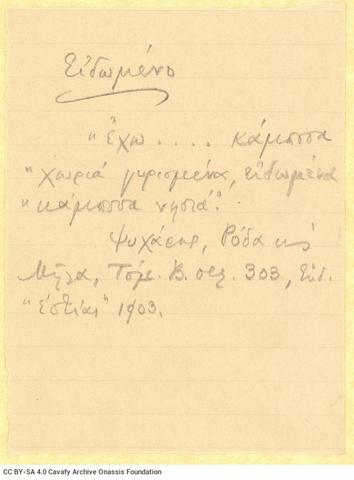 Εἰδωμένο
"Ἔχω .... κάμποσα
"χωριά γυρισμένα, εἰδωμένα
"κάμποσα νησιά."
Ψυχάρης, Ρόδα κή
Μῆλα, Τόμ. Β. σελ. 303, Ἐκδ.
"Ἑστίας" 1903.
CC BY-SA 4.0 Cavafy Archive Onassis Foundation